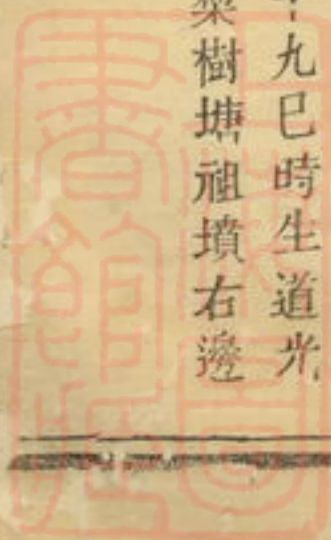 十九巳時生道光
樹塘祖墳右邊